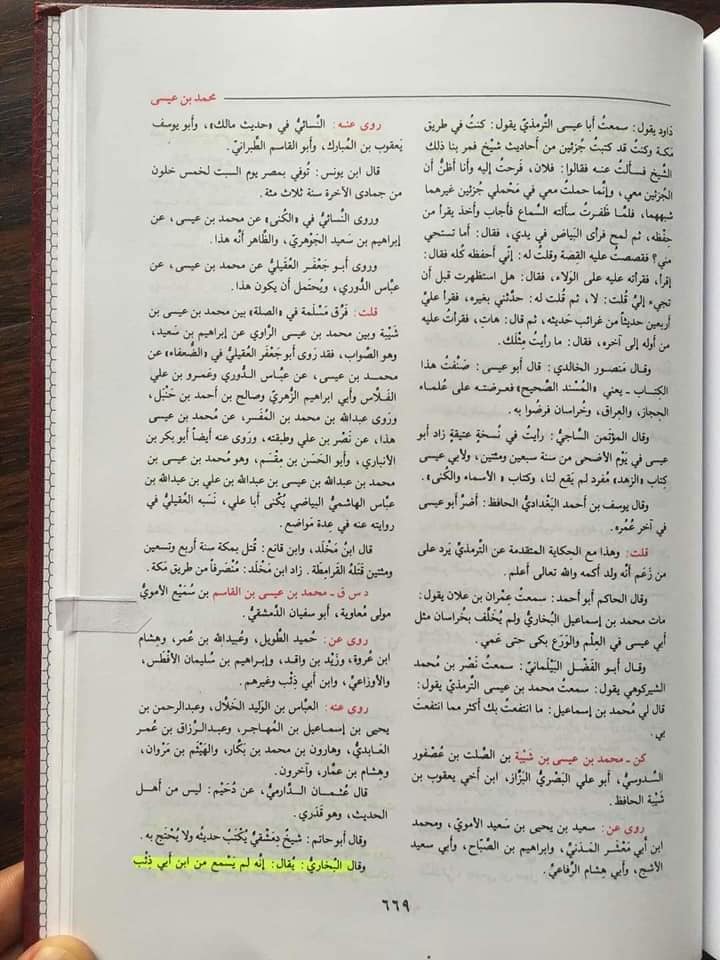 محمد بن عيسى
داود يقول: سمعتُ أبا عيسى التِّرمذيَّ يقول: كنتُ في طريق
مَكة وكنت قد كتبتُ جُزئين من أحاديث شَيْخ فمر بنا ذلك
الشَّيخ فسـألتُ عنـه فقالوا: فلان، فَرحتُ إليه وأنا أظُنُّ أن
الجُزئين معي، وإنَّما حملتُ معي في مَحْملي جُزئين غيرهما
شبههما، فلمَّا ظَفرتُ سألته السَّماع فأجاب وأخذ يقرأ من
حِفْظه، ثم لمح فرأى البَياض في يدي، فقال: أما تستحي
مني؟ فقصصتُ عليه القِصة وقلتُ له: إنِّي أحفظه كُله فقال:
إقرأ، فقرأته عليه على الوَلاء، فقال: هل استظهرت قبل أن
تجيء إليَّ؟ قُلت: لا، ثم قُلت له: حدِّثني بغيره، فقرأ عليَّ
أربعين حديثاً من غرائب حَديثه، ثم قال: هاتِ، فقرأتُ عليه
من أوله إلى آخره، فقال: ما رأيتُ مِثْلك.
وقـال مَنصـور الخالدي: قال أبو عيسى: صَنَّفتُ هذا
الكِتـاب ـ يعني «المُسْند الصَّحيح» فعـرضتـه على عُلمـاء
الحِجاز، والعِراق، وخُراسان فرضُوا به.
وقال المؤتَمن السَّاجيُّ: رأيتُ في نُسخةٍ عتيقةٍ زاد أبو
عيسى في يَوْم الأضحى من سنة سبعين ومئتين، ولأبي عيسى
كتاب «الزهد» مُفرد لم يَقع لنا، وكتاب «الأسماء والكُنى».
وقال يوسف بن أحمد البَغْداديُّ الحافظ: أضرَّ أبو عيسى
في آخر عُمُره.
قلت: وهذا مع الحِكاية المتقدمة عن التِّرمذيِّ يَرد على
من زَعَم أنَّه ولد أكمه والله تعالى أعلم.
وقال الحاكم أبو أحمد: سمعتُ عِمْران بن علان يقول:
مات محمد بن إسماعيل البُخاريُّ ولم يُخَلِّف بخُراسان مثل
أبي عيسى في العِلْم والوَرَع بكى حتى عَمي.
وقال أبـو الفَضْـل البَيْلَمانيُّ: سمعتُ نَصْر بن مُحمد
الشيركوهي يقول: سمعتُ محمد بن عيسى التِّرمذيَّ يقول:
قال لي مُحمد بن إسماعيل: ما انتفعتُ بك أكثر مما انتفعتَ
بي.
كن ـ محمد بن عيسى بن شَيْبة بن الصَّلت بن عُصْفور
السـدوسي، أبو علي البَصْريُّ البَزَّاز، ابن أخي يعقوب بن
شَيْبة الحافظ.
روى عن: سعيد بن يحيى بن سعيد الأمويِّ، ومحمد
ابن أبي مَعْشَـر المـدنيِّ، وابراهيم بن الصَّبَّاح، وأبي سعيد
الأشج، وأبي هِشام الرِّفاعيِّ.
روى عنـه: النَّسائيُّ في «حديث مالك»، وأبو يوسف
يَعقوب بن المُبارك، وأبو القاسم الطَّبرانيُّ.
قال ابن يونس: تُوفي بمصر يوم السبت لخمس خلون
من جمادى الآخرة سنة ثلاث مئة.
وروى النَّسائيُّ في «الكُنى» عن محمد بن عيسى، عن
إبراهيم بن سَعيد الجَوْهريِّ، والظَّاهر أنَّه هذا.
وروى أبـو جَعْفَـر العُقيليُّ عن محمد بن عيسى، عن
عبَّاس الدُّوري، ويُحتمل أن يكون هذا.
قلت: فَرَّق مَسْلمة في «الصلة» بين محمد بن عيسى بن
شَيْبة وبين محمد بن عيسى الرَّاوي عن إبراهيم بن سَعيد،
وهو الصَّواب، فقد رَوى أبو جَعْفَر العقيليُّ في «الضعفاء» عن
محمـد بن عيسى، عن عبَّاس الدُّوري وعمـرو بن علي
الفَلَّاس وأبي ابراهيم الزُّهريِّ وصالح بن أحمد بن حَنْبل،
ورَوى عبدالله بن محمد بن المُفَسر، عن مُحمد بن عيسى
هذا، عن نَصْر بن علي وطبقته، ورَوى عنه أيضاً أبو بكر بن
الأنباري، وأبو الحَسَن بن مِقْسَم، وهو مُحمد بن عيسى بن
محمد بن عبدالله بن عيسى بن عبدالله بن علي بن عبدالله بن
عبَّاس الهاشميُّ البَياضي يُكْنى أبا علي، نَسَبه العُقيليُّ في
روايته عنه في عِدة مَواضع.
قال ابنُ مَخْلَد، وابن قانع: قُتل بمكة سنة أربع وتسعين
ومئتين قَتَلَهُ القَرامِطة. زاد ابن مَخْلد: مُنْصَرفاً من طريق مَكة.
د س ق ـ محمد بن عيسى بن القاسم بن سُمَيْع الأمويُّ
مولى مُعاوية، أبو سفيان الدِّمشقيُّ.
روى عن: حُميد الطَّويل، وعُبيدالله بن عُمر، وهِشام
ابن عُروة، وزَيْد بن واقـد، وإبراهيم بن سُليمان الأفْطس،
والأوزاعيِّ، وابن أبي ذِئْب وغيرهم.
روي عنه: العبَّاس بن الوَليد الخَلَّال، وعبدالرحمن بن
يحيى بن إسماعيل بن المُهـاجـر، وعبـدالـرزاق بن عُمر
العَـابديُّ، وهارون بن محمد بن بَكَّار، والهَيْثم بن مَرْوان،
وهِشام بن عمَّار، وآخرون.
قال عُثـمـان الـدَّارميُّ، عن دُحَيْم: ليس من أهـل
الحديث، وهو قَدَري.
وقال أبو حاتم: شَيخٌ دِمَشْقيٌّ يُكْتَبُ حديثه ولا يُحْتج به.
وقال البُخاريُّ: يُقال: إنَّه لم يَسْمع من ابن أبي ذِئْب
٦٦٩